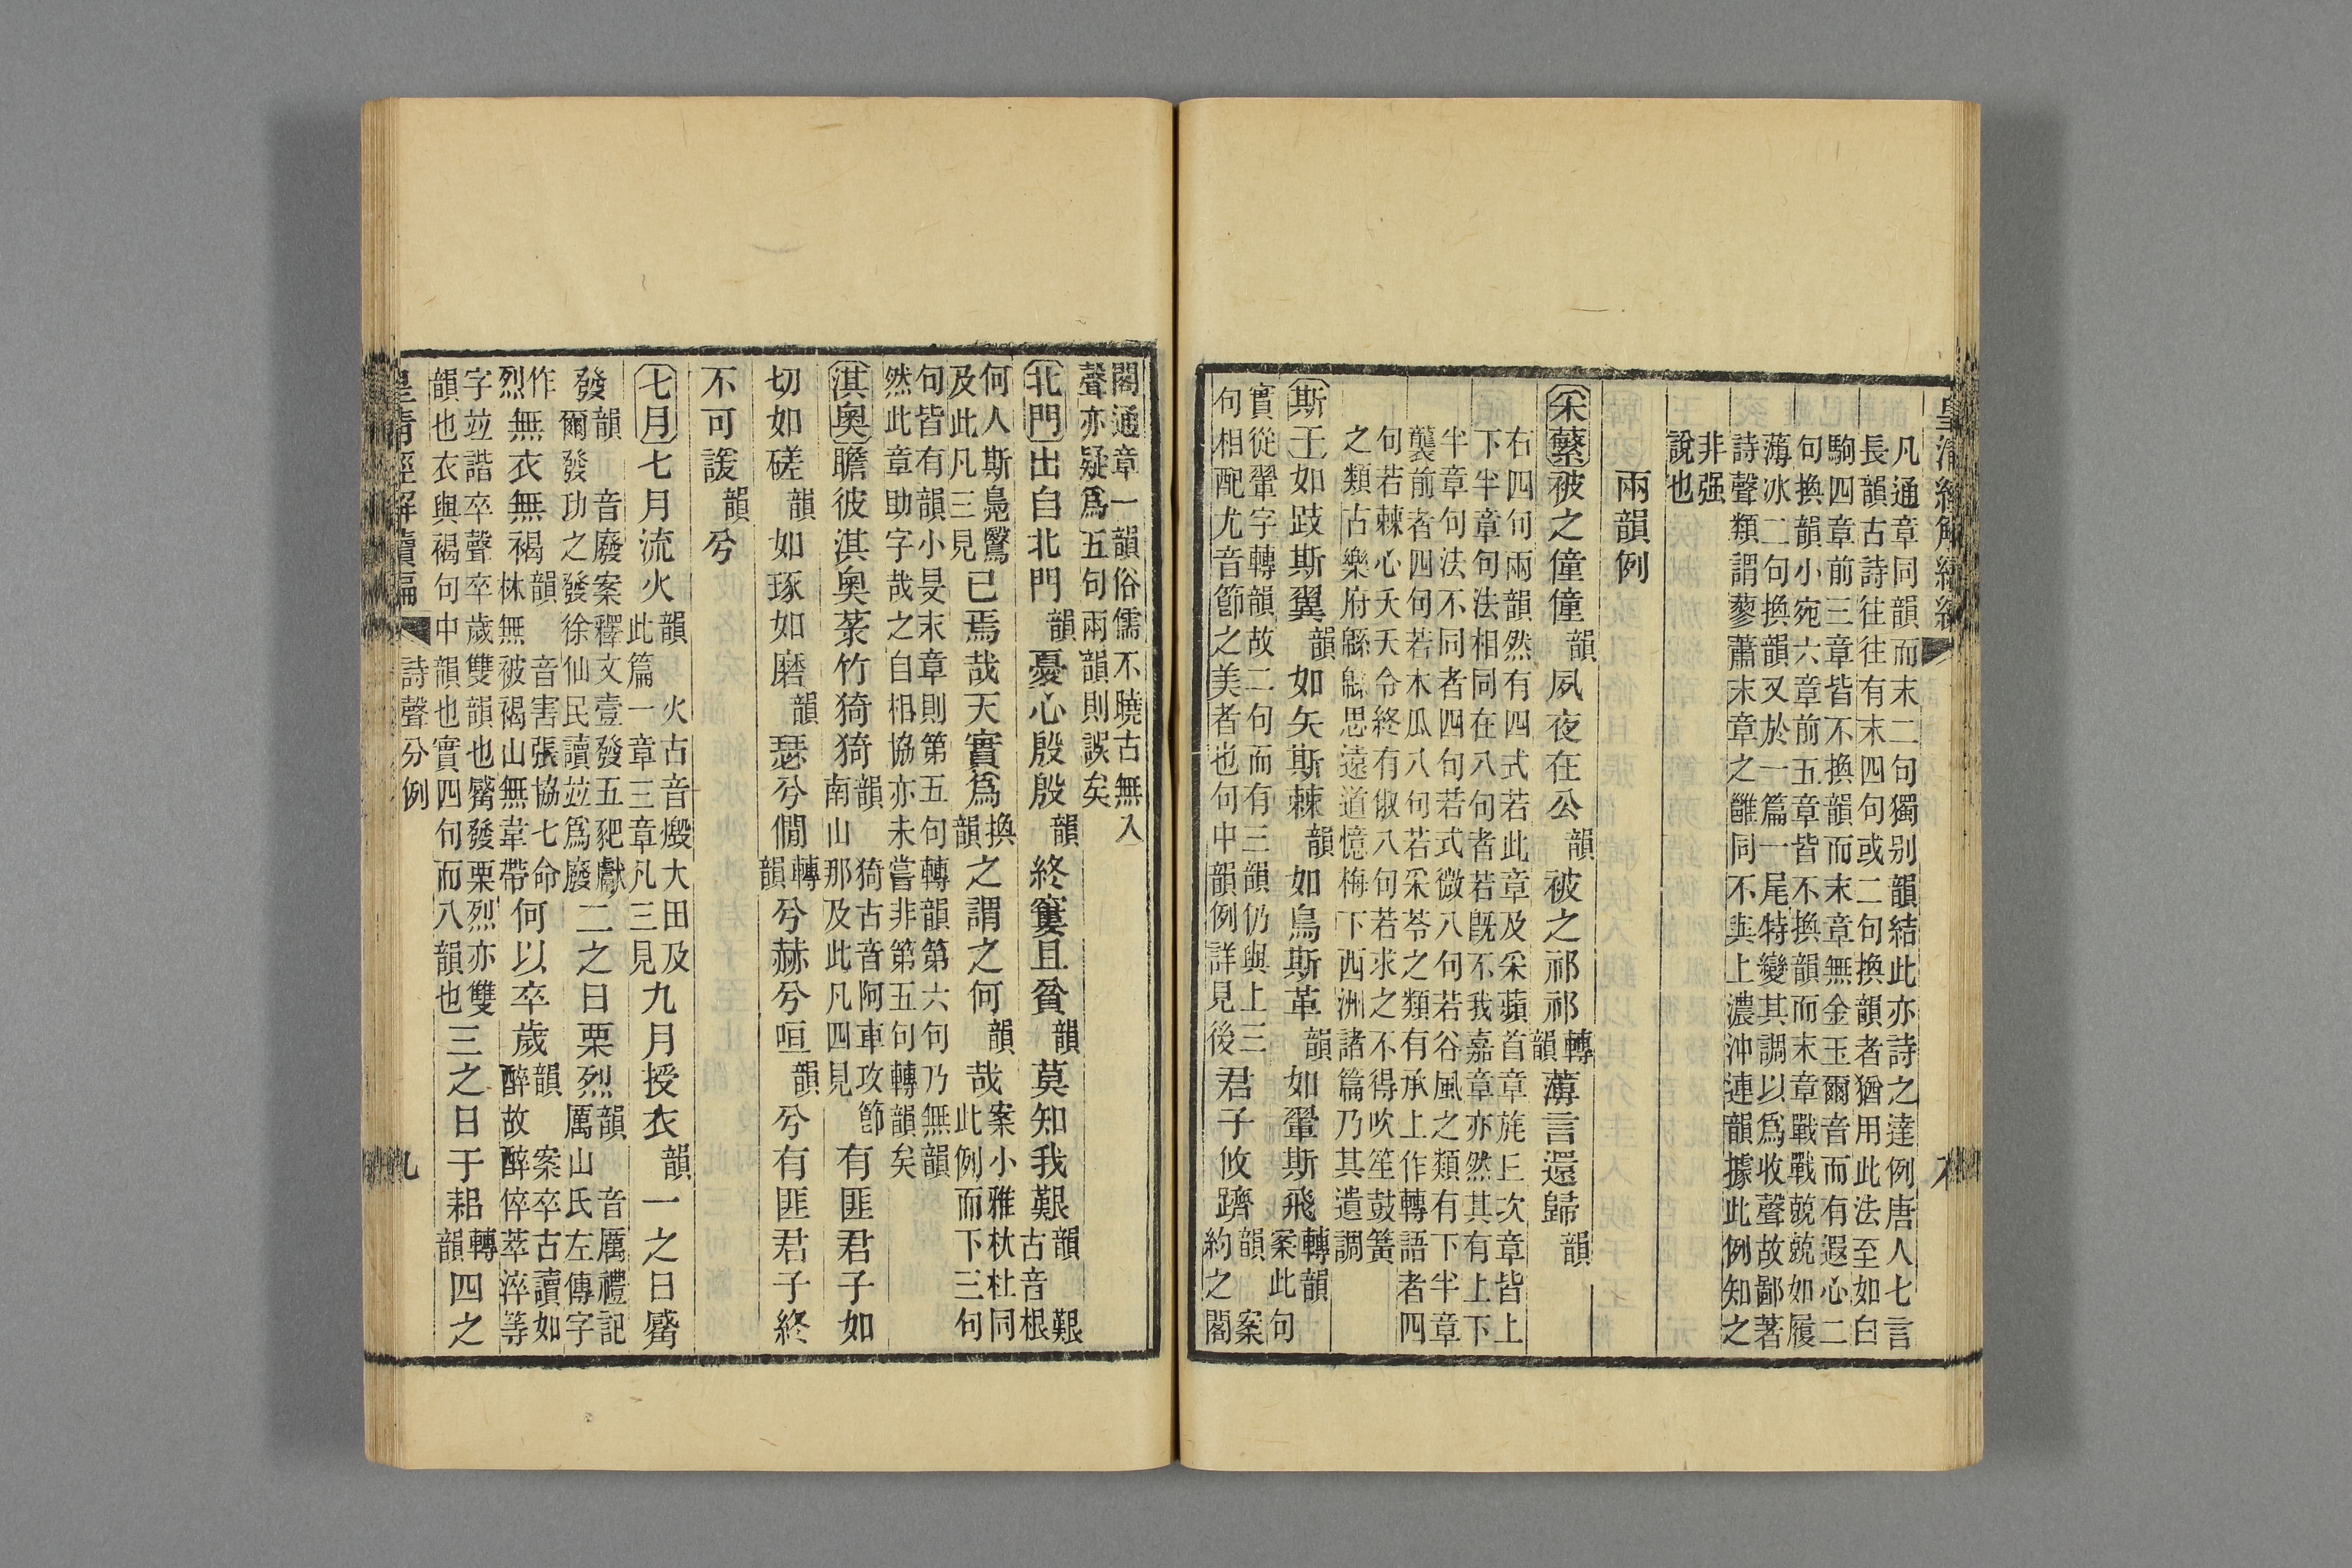 皇清經解續編
凡通章同韻而末二句獨別韻結此亦詩之達例唐人七言
長韻古詩往往有末四句或二句換韻者猶用此法至如白
駒四章前三章皆不換韻而末章無金玉爾音而有遐心二
句換韻小宛六章前五章皆不換韻而末章戰戰兢兢如履
薄冰二句換韻又於一篇一尾特變其調以爲收聲故鄙著
詩聲類謂蓼蕭末章之雝同不與上濃沖連韻據此例知之
非强
說也
兩韻例
采蘩被之僮僮韻夙夜在公韻被之祁祁轉韻薄言還歸韻
右四句兩韻然有四式若此章及采蘋首章旄丘次章皆上
下半章句法相同在八句者若既不我嘉章亦然其有上下
半章句法不同者四句若式微八句若谷風之類有下半章
襲前者四句若木瓜八句若采苓之類有承上作轉語者四
句若棘心夭夭令終有俶八句若求之不得吹笙鼓簧
之類古樂府緜緜思遠道憶梅下西洲諸篇乃其遺調
斯干如跂斯翼韻如矢斯棘韻如鳥斯革韻如翬斯飛轉韻案此句
實從翬字轉韻故二句而有三韻仍與上三
句相配尤音節之美者也句中韻例詳見後君子攸躋韻案約之閣
閣通章一韻俗儒不曉古無入
聲亦疑爲五句兩韻則誤矣
北門出自北門韻憂心殷殷韻終窶且貧韻莫知我艱韻艱古音根
何人斯鳧鷖
及此凡三見已焉哉天實爲換韻之謂之何韻哉案小雅杕杜同此例而下三句
句皆有韻小旻末章則第五句轉韻第六句乃無韻
然此章助字哉之自相協亦未嘗非第五句轉韻矣
淇奧瞻彼淇奧菉竹猗猗韻猗古音阿車攻節南山那及此凡四見有匪君子如
切如磋韻如琢如磨韻瑟兮僩轉韻兮赫兮咺韻兮有匪君子終
不可諼韻兮
七月七月流火韻火古音燬大田及此篇一章三章凡三見九月授衣韻一之日觱
發韻音廢案釋文壹發五豝獻爾發功之發徐仙民讀竝爲廢二之日栗烈韻音厲禮記厲山氏左傳字
作烈無衣無褐韻音害張協七命林無被褐山無韋帶何以卒歲韻案卒古讀如醉故醉倅萃淬等
字竝諧卒聲卒歲雙韻也觱發栗烈亦雙
韻也衣與褐句中韻也實四句而八韻也三之日于耜轉韻四之
皇清經解續編
詩聲分例
九